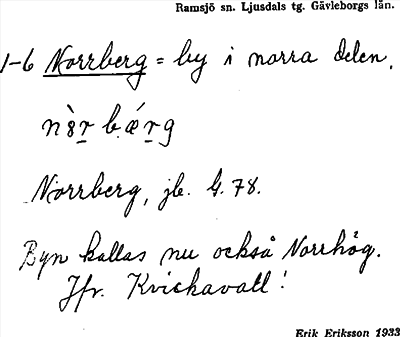 Ramsjö sn. Ljusdals tg. Gävleborgs län.
1-6 Norrberg = by i norra delen.
nȣ̀r̲ bǽr̲g
Norrberg, jb. G. 78.
Byn kallas nu också Norrhög.
Jfr. Kvickavall!
Erik Eriksson 1933